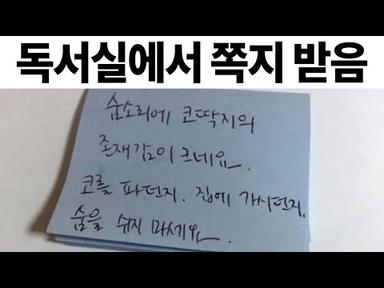 독서실에서 쪽지 받음
숨소리에 코딱지의
존재감이 크네요.
코를 파던지. 집에 가시던지.
숨을 쉬지 마세요.